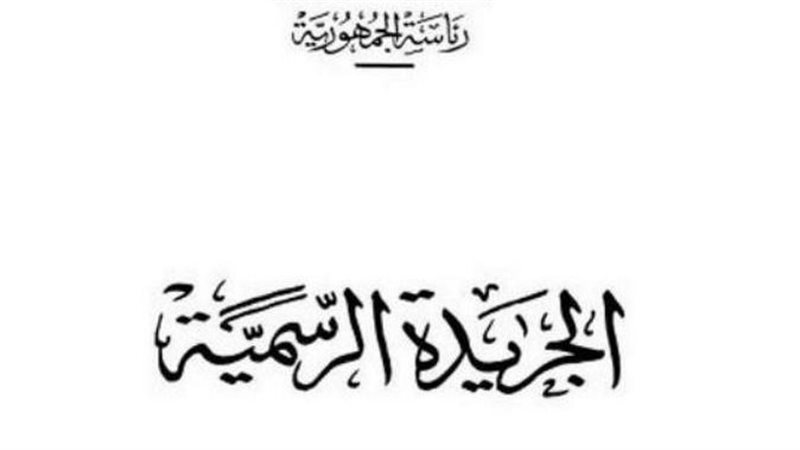 رئاسة الجمهورية
الجريدة الرسمية